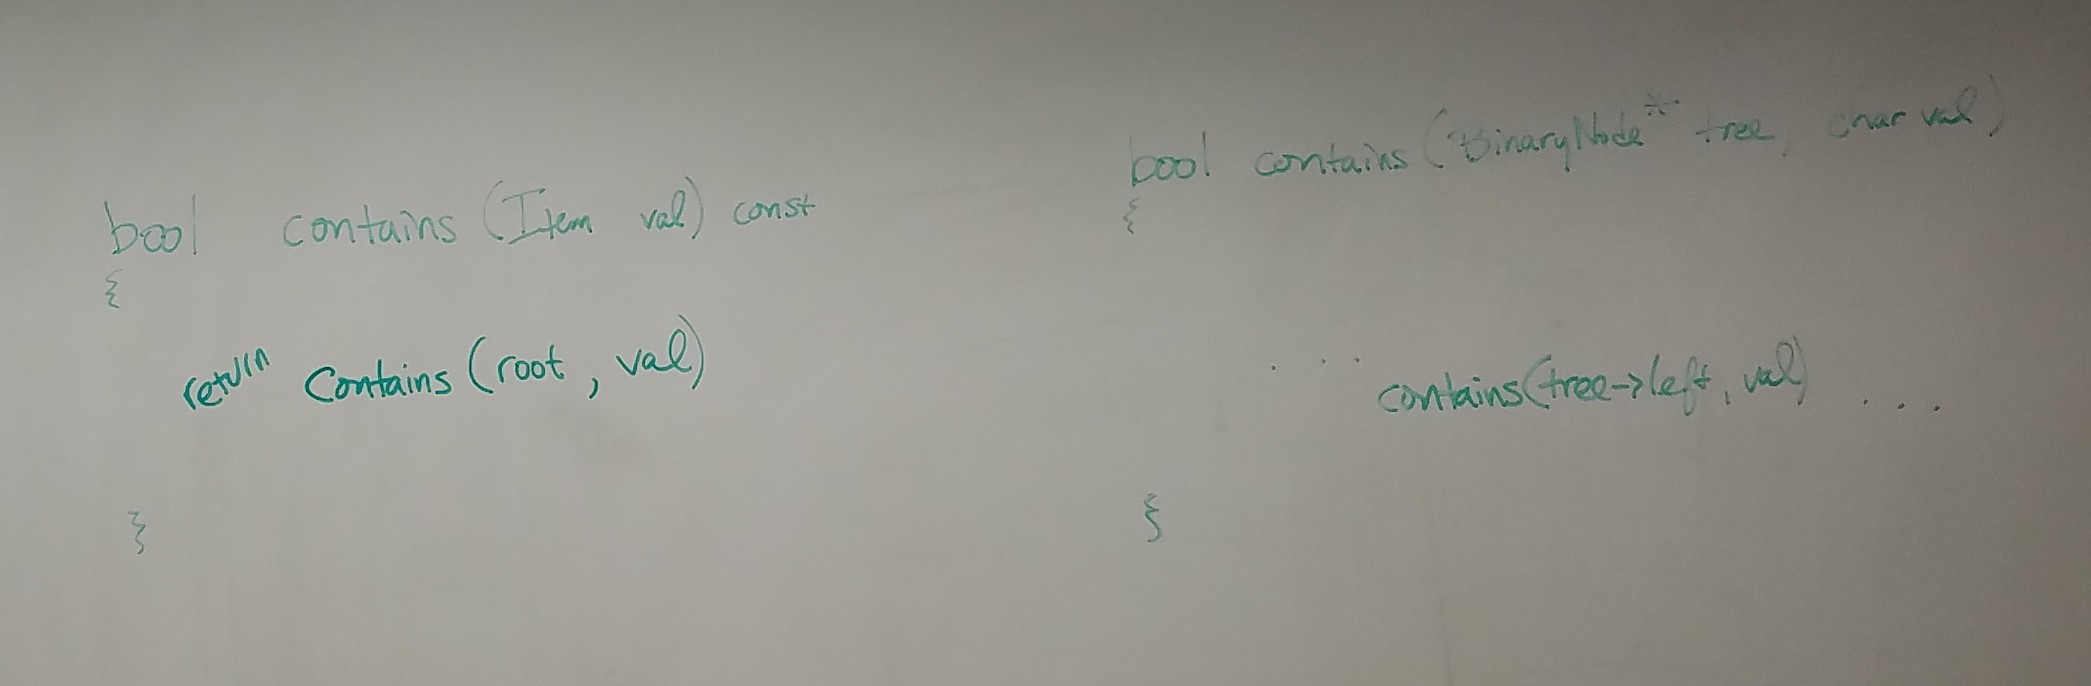 bool contains (Item val) const
{
return contains (root, val)
}
bool contains (BinaryNode* tree, char val)
{
... contains(tree->left, val) ...
}